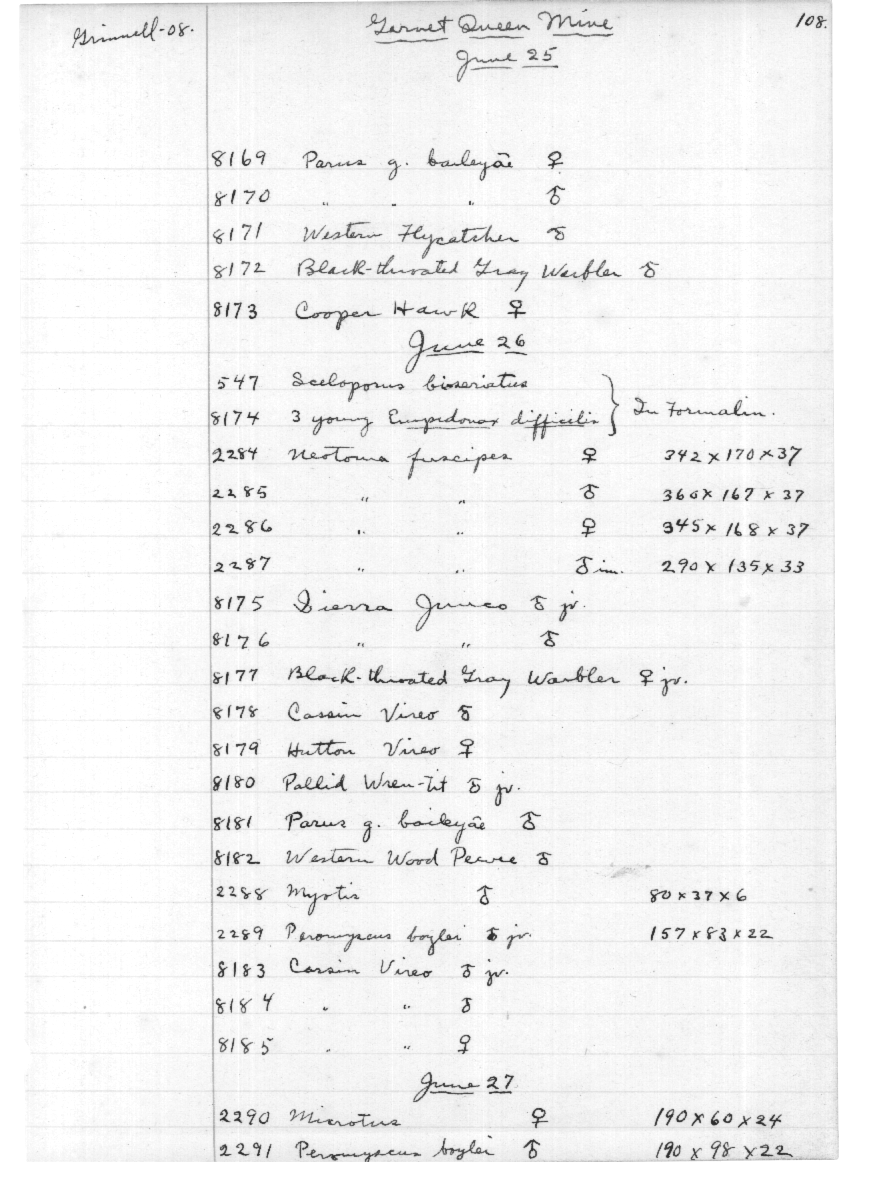 Grinnell-08.
Garnet Queen Mine
108.
June 25
8169 Parus g. baileyae ♀
8170 " " " ♂
8171 Western Flycatcher ♂
8172 Black-throated Gray Warbler ♂
8173 Cooper Hawk ♀
June 26
547 Sceloporus biseriatus
8174 3 young Empidonax difficilis } In Formalin.
2284 Neotoma fuscipes ♀ 342 x 170 x 37
2285 " " ♂ 360 x 167 x 37
2286 " " ♀ 345 x 168 x 37
2287 " " ♂ im. 290 x 135 x 33
8175 Sierra Junco ♂ jv.
8176 " " ♂
8177 Black-throated Gray Warbler ♀ jv.
8178 Cassin Vireo ♂
8179 Hutton Vireo ♀
8180 Pallid Wren-tit ♂ jv.
8181 Parus g. baileyae ♂
8182 Western Wood Pewee ♂
2288 Myotis ♂ 80 x 37 x 6
2289 Peromyscus boylei ♂ jv. 157 x 83 x 22
8183 Cassin Vireo ♂ jv.
8184 " " ♂
8185 " " ♀
June 27
2290 Microtus ♀ 190 x 60 x 24
2291 Peromyscus boylei ♂ 190 x 98 x 22